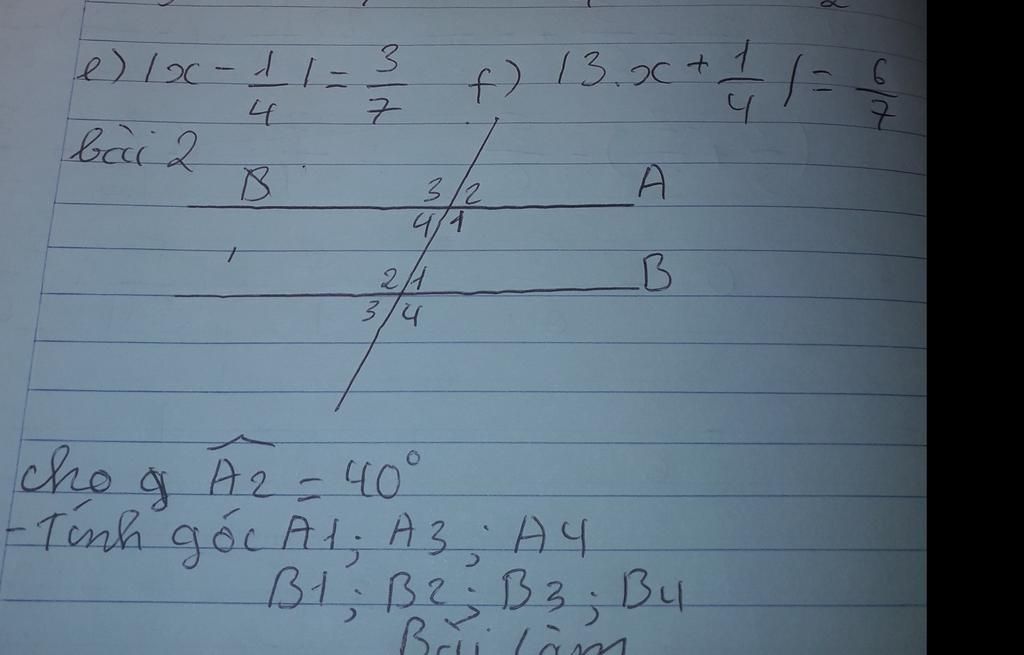 e) |x - 1/4| = 3/7 f) |3.x + 1/4| = 6/7
bài 2
B 3 2 A
4 1
2 1 B
3 4
cho g A2 = 40°
- Tính góc A1; A3; A4
B1; B2; B3; B4
Bài làm